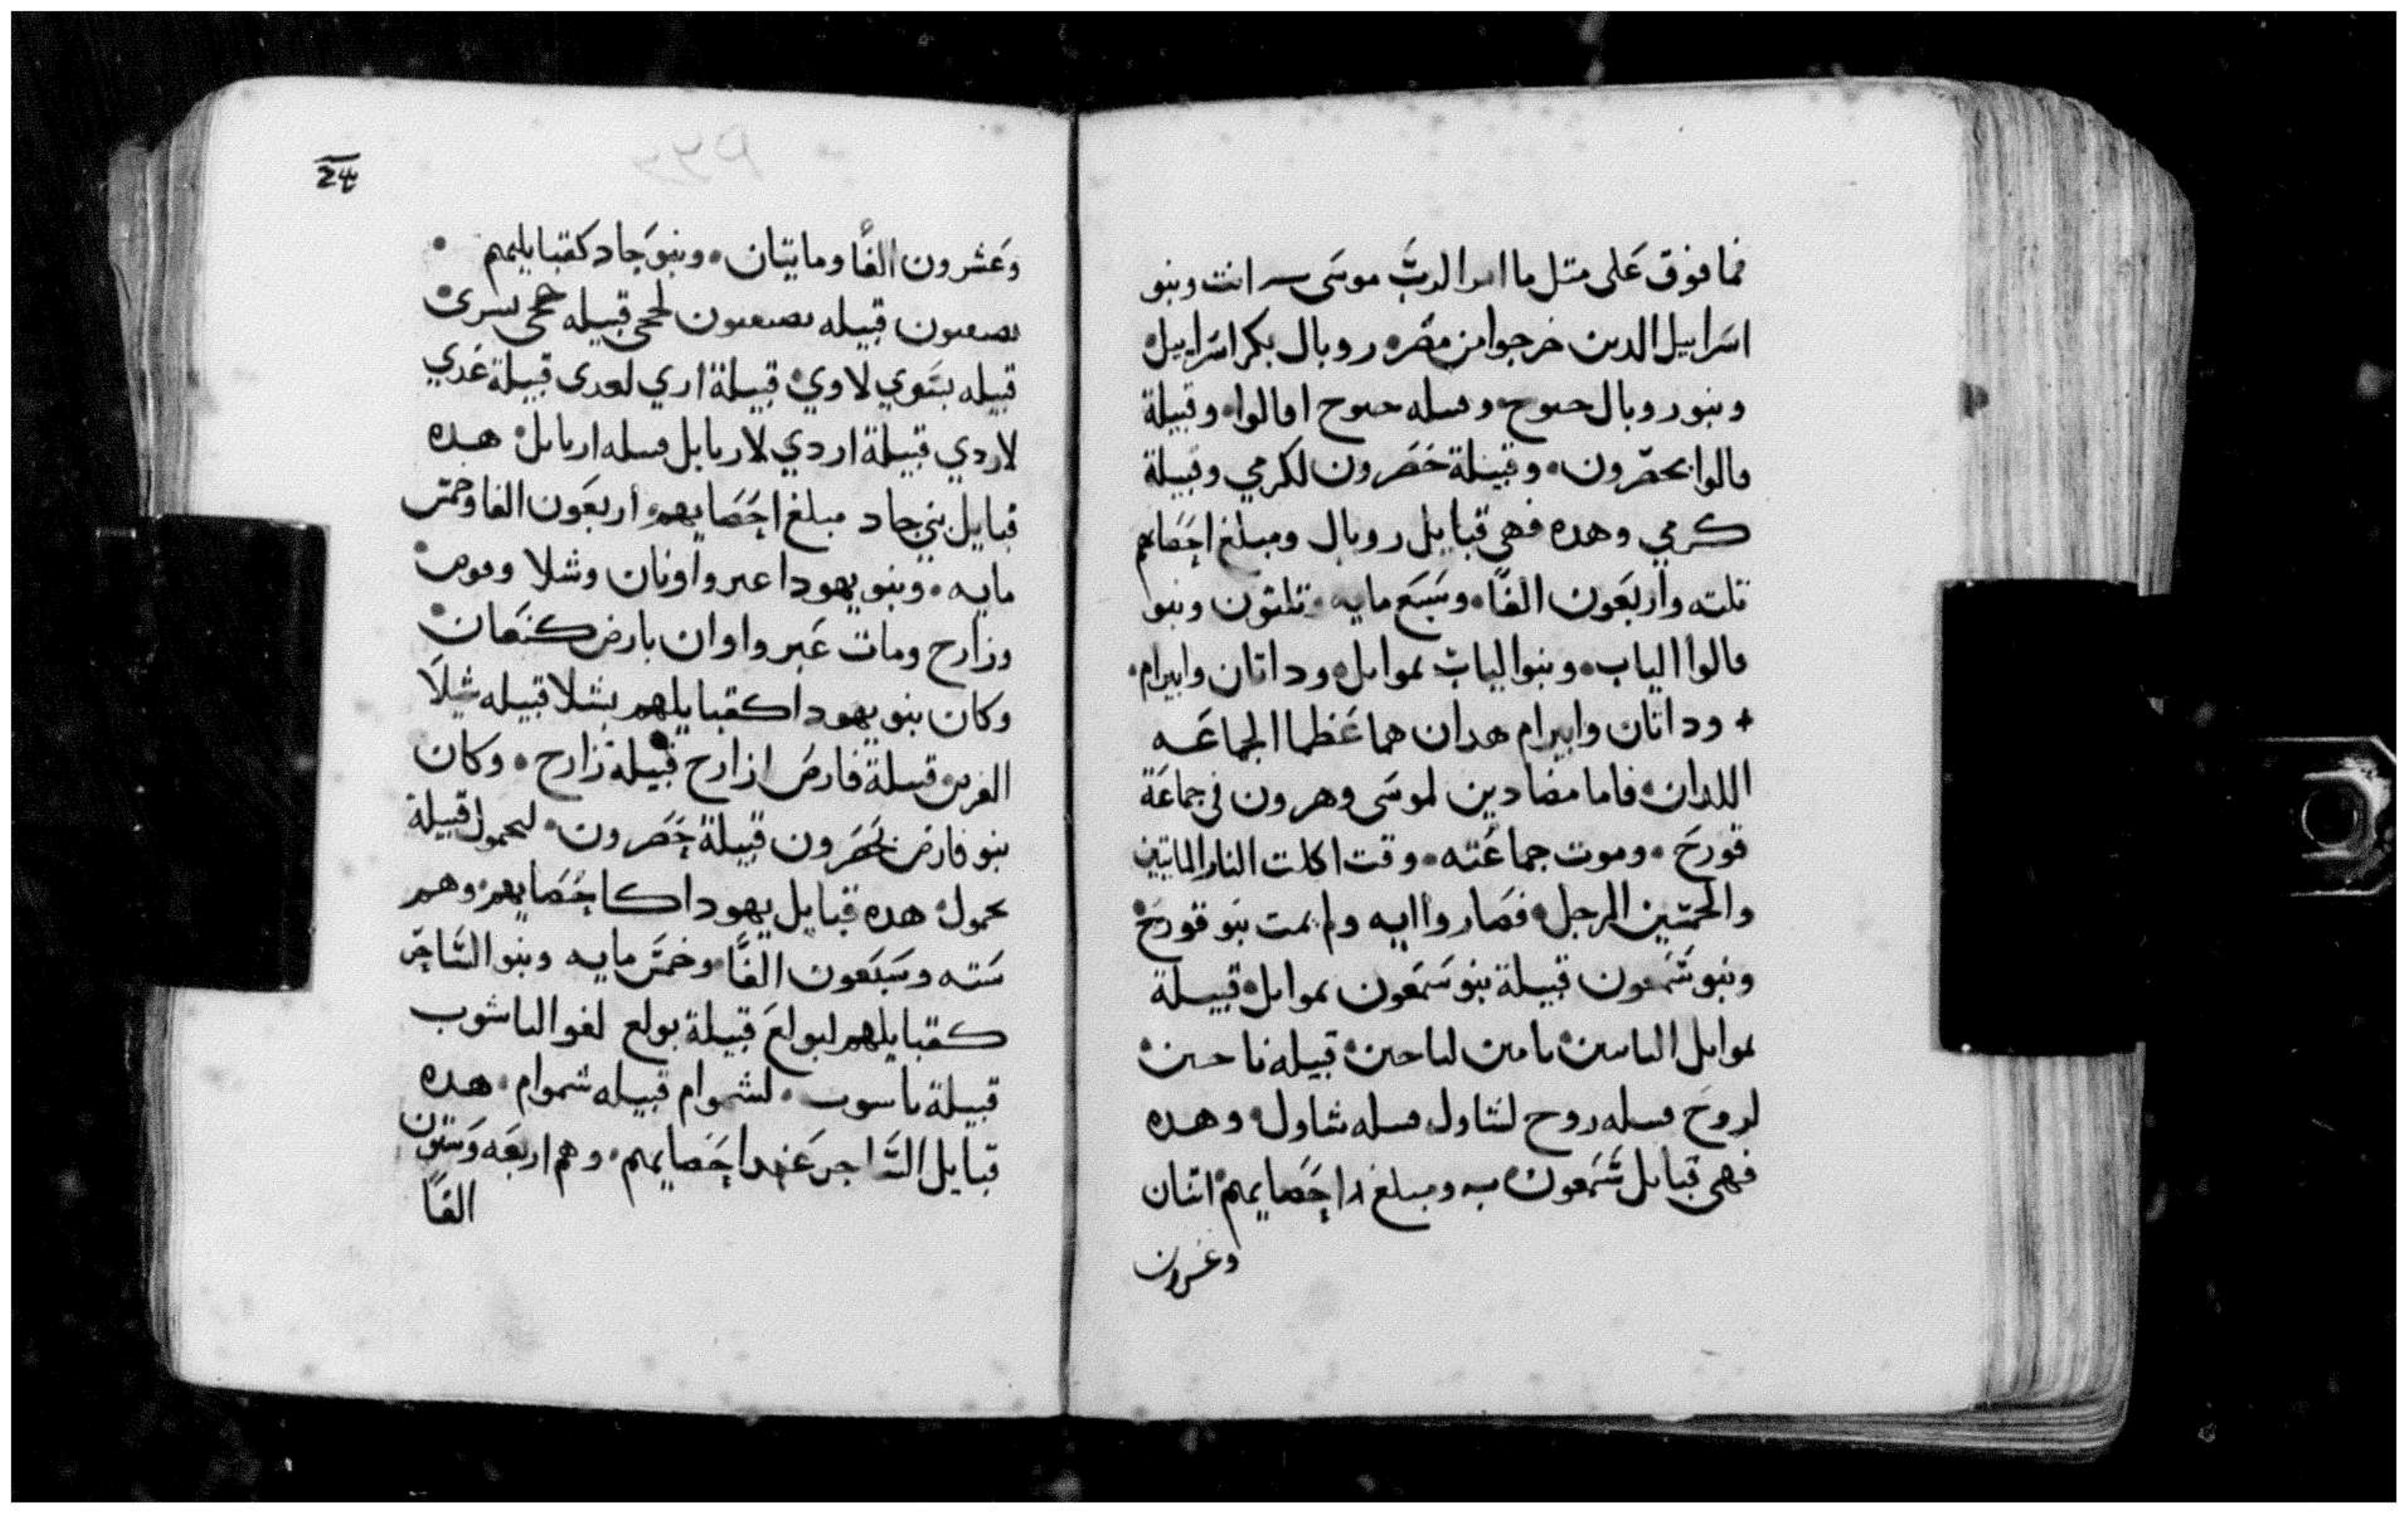 فما فوق على متل ما امر الرب موسى انت وبنو
اسراييل الدين خرجوا من مصر روبال بكر اسراييل
وبنو روبال حنوح وقبيله حنوح افالوا وقبيلة
فالوا بحصرون وقبيلة حصرون لكرمي وقبيلة
كرمي وهده فهي قبايل روبال ومبلغ احصايهم
تلته واربعون الفًا وسبع مايه وتلتون وبنوا
فالوا الياب وبنوا الياب نموايل وداتان وابيرام
+ وداتان وابيرام هدان هما عظما الجماعه
اللدان قاما مضادين لموسى وهرون في جماعة
قورح وموت جماعته وقت اكلت النار الماتيين
والخمسين الرجل فصاروا ايه ولم يمت بنو قورح
وبنو شمعون قبيلة بنو شمعون نموايل قبيلة
نموايل الياسين يامين لياحين قبيله ياحين
لروح قبيله روح لشاول قبيله شاول وهده
فهي قبايل شمعون ومبلغ احصايهم اتنان
وعشرون
24
وعشرون الفًا ومايتان وبنو جاد كقبايلهم
قبيله لحجي قبيله حجي
قبيله لاوي قبيلة اري لعدي قبيلة عدي
لاردي قبيلة اردي لاريايل قبيله اريايل هده
قبايل بني جاد مبلغ احصايهم اربعون الفا وخمس
مايه وبنو يهودا عير واونان وشلا وفرص
وزارح ومات عير واوان بارض كنعان
وكان بنو يهودا كقبايلهم بشلا قبيله شيلا
الفرص قبيلة فارص ازارح قبيلة زارح وكان
بنو فارص لحصرون قبيلة حصرون لحمول قبيلة
حمول هده قبايل يهودا كاحصايهم وهم
سته وسبعون الفًا وخمس مايه وبنو الساجر
كقبايلهم لبولع قبيلة بولع لفوا الياشوب
قبيلة ياسوب لشموام قبيله شموام هده
قبايل الساجر عند احصايهم وهم اربعه وستون
الفًا